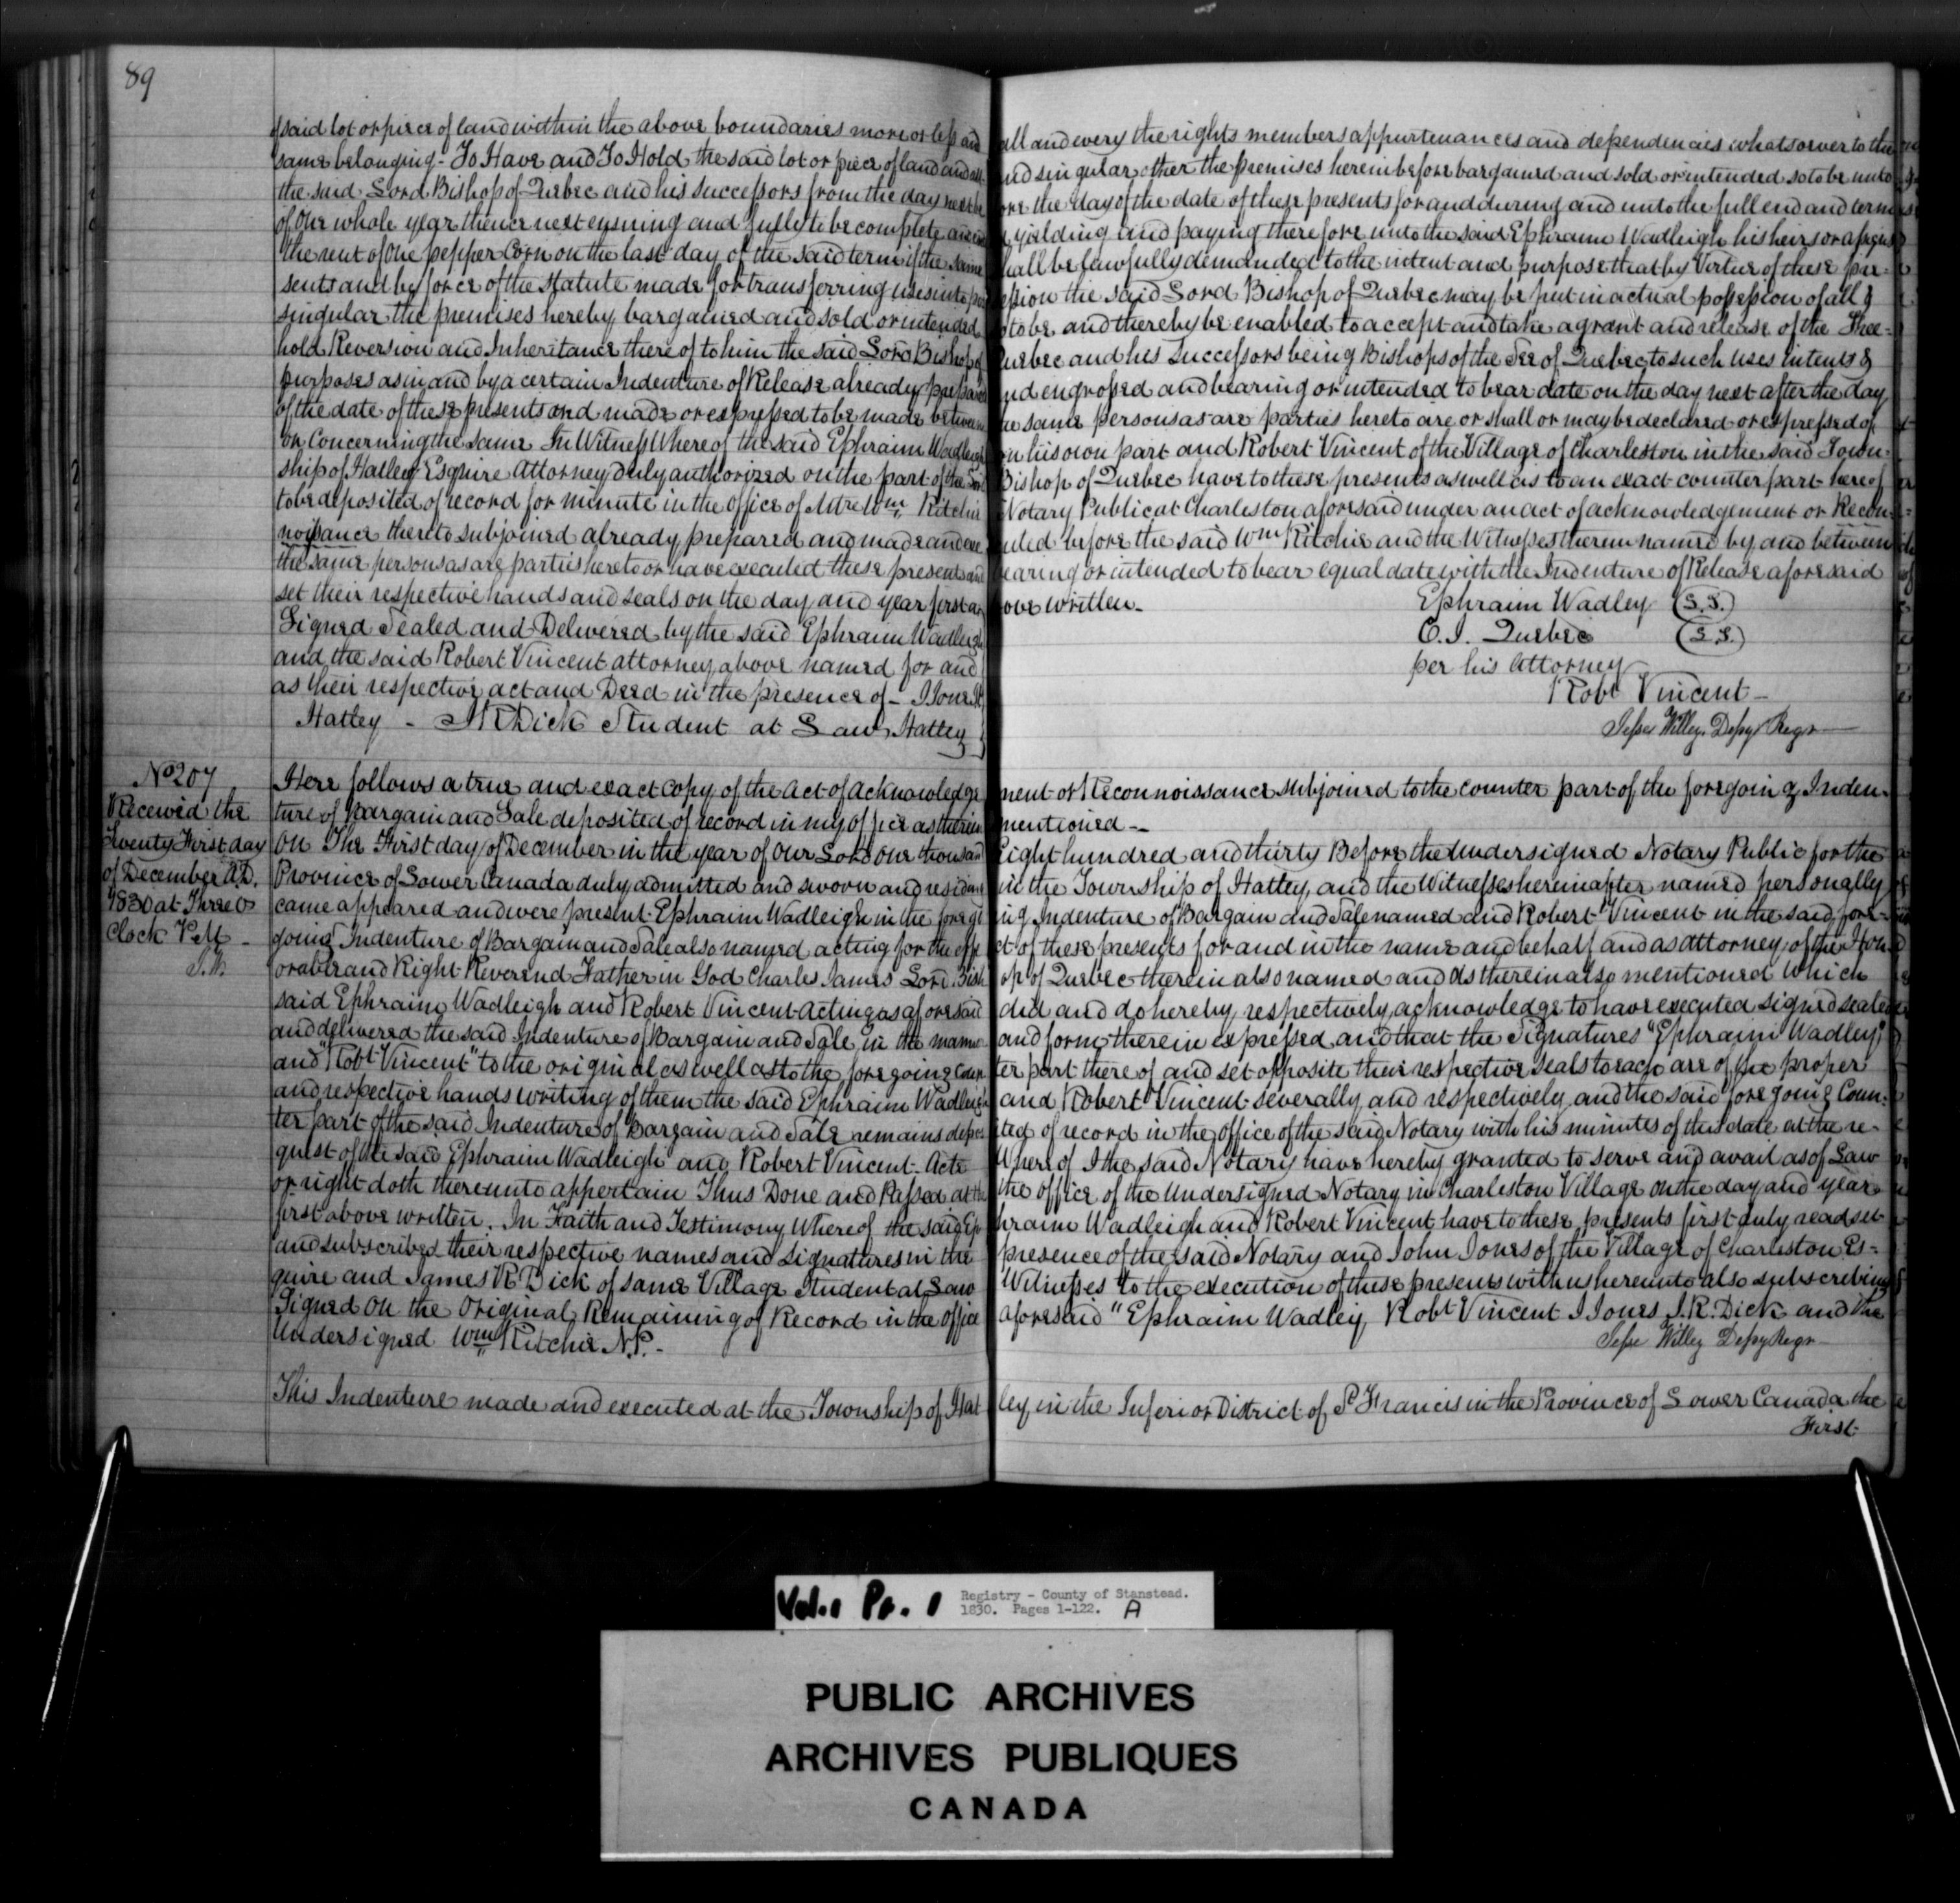 89
of said lot or piece of land within the above boundaries more or less and all and every the rights members appurtenances and dependencies whatsoever to the
same belonging - To Have and To Hold the said lot or piece of land and all and singular other the premises hereinbefore bargained and sold or intended so to be unto
the said Lord Bishop of Quebec and his Successors from the day next before the day of the date of these presents for and during and unto the full end and term
of One whole year thence next ensuing and fully to be complete and yielding and paying therefore unto the said Ephraim Wadleigh his heirs or assigns
the rent of One pepper Corn on the last day of the said term if the same shall be lawfully demanded to the intent and purpose that by Virtue of these pre-
sents and by force of the Statute made for transferring uses into possession the said Lord Bishop of Quebec may be put in actual possession of all &
singular the premises hereby bargained and sold or intended so to be and thereby be enabled to accept and take a grant and release of the Free-
hold Reversion and Inheritance thereof to him the said Lord Bishop of Quebec and his Successors being Bishops of the See of Quebec, to such uses intents &
purposes as in and by a certain Indenture of Release already prepared and engrossed and bearing or intended to bear date on the day next after the day
of the date of these presents and made or expressed to be made between the same persons as are parties hereto are or shall or may be declared or expressed of
or Concerning the same In Witness Whereof the said Ephraim Wadleigh on his own part and Robert Vincent of the Village of Charleston in the said Town-
ship of Hatley Esquire Attorney duly authorized on the part of the Lord Bishop of Quebec have to these presents as well as to an exact counter part hereof
to be deposited of record for minute in the Office of Mtre Wm Ritchie Notary Public at Charleston aforesaid under an act of acknowledgement or Recon-
noissance thereto subjoined already prepared and made and executed before the said Wm Ritchie and the Witnesses therein named by and between
the same persons as are parties hereto or have executed these presents and bearing or intended to bear equal date with the Indenture of Release aforesaid
set their respective hands and seals on the day and year first above written -
Ephraim Wadley (L.S.)
Signed Sealed and Delivered by the said Ephraim Wadleigh
C. J. Quebec (L.S.)
and the said Robert Vincent attorney above named for and
per his Attorney
as their respective act and Deed in the presence of - J Jones Jr
Robt Vincent -
Hatley - J R Dick Student at Law Hatley
Jesse Willey Depy Regr
No 207
Received the
Twenty First day
of December A.D.
1830 at Three O
Clock P.M -
J.W.
Here follows a true and exact Copy of the Act of Acknowledgement or Reconnoissance subjoined to the counter part of the foregoing Inden-
ture of Bargain and Sale deposited of record in my office as therein mentioned -
On The First day of December in the year of Our Lord One thousand Eight hundred and thirty Before the Undersigned Notary Public for the
Province of Lower Canada duly admitted and sworn and residing in the Township of Hatley, and the Witnesses hereinafter named personally
came appeared and were present Ephraim Wadleigh in the foregoing Indenture of Bargain and Sale named and Robert Vincent in the said fore-
going Indenture of Bargain and Sale also named acting for the effect of these presents for and in the name and behalf and as attorney of the Hon
orable and Right Reverend Father in God Charles James Lord Bishop of Quebec therein also named and as therein also mentioned Which
said Ephraim Wadleigh and Robert Vincent Acting as aforesaid did and do hereby respectively acknowledge to have executed signed sealed
and delivered the said Indenture of Bargain and Sale in the manner and form therein expressed and that the Signatures "Ephraim Wadley"
and "Robt Vincent" to the original as well as to the foregoing Counter part thereof and set opposite their respective seals to each are of the proper
and respective hands writing of them the said Ephraim Wadleigh and Robert Vincent severally and respectively and the said foregoing Coun-
ter part of the said Indenture of Bargain and Sale remains deposited of record in the Office of the said Notary with his minutes of this date at the re-
quest of the said Ephraim Wadleigh and Robert Vincent - Acte Whereof I the said Notary have hereby granted to serve and avail as of Law
or right doth thereunto appertain Thus Done and Passed at the the Office of the Undersigned Notary in Charleston Village on the day and year
first above written. In Faith and Testimony Whereof the said Ephraim Wadleigh and Robert Vincent have to these presents first duly read set
and subscribed their respective names and signatures in the presence of the said Notary and John Jones of the Village of Charleston Es-
quire and James R Dick of same Village Student at Law Witnesses to the execution of these presents with us hereunto also subscribing
Signed On the Original Remaining of Record in the Office aforesaid "Ephraim Wadley, Robt Vincent J Jones J.R. Dick and the
Undersigned Wm Ritchie N.P. -
Jesse Willey Depy Regr
This Indenture made and executed at the Township of Hatley in the Inferior District of St Francis in the Province of Lower Canada the
First
Vol. 1 Pt. 1
Registry - County of Stanstead.
1830. Pages 1-122. A
PUBLIC ARCHIVES
ARCHIVES PUBLIQUES
CANADA